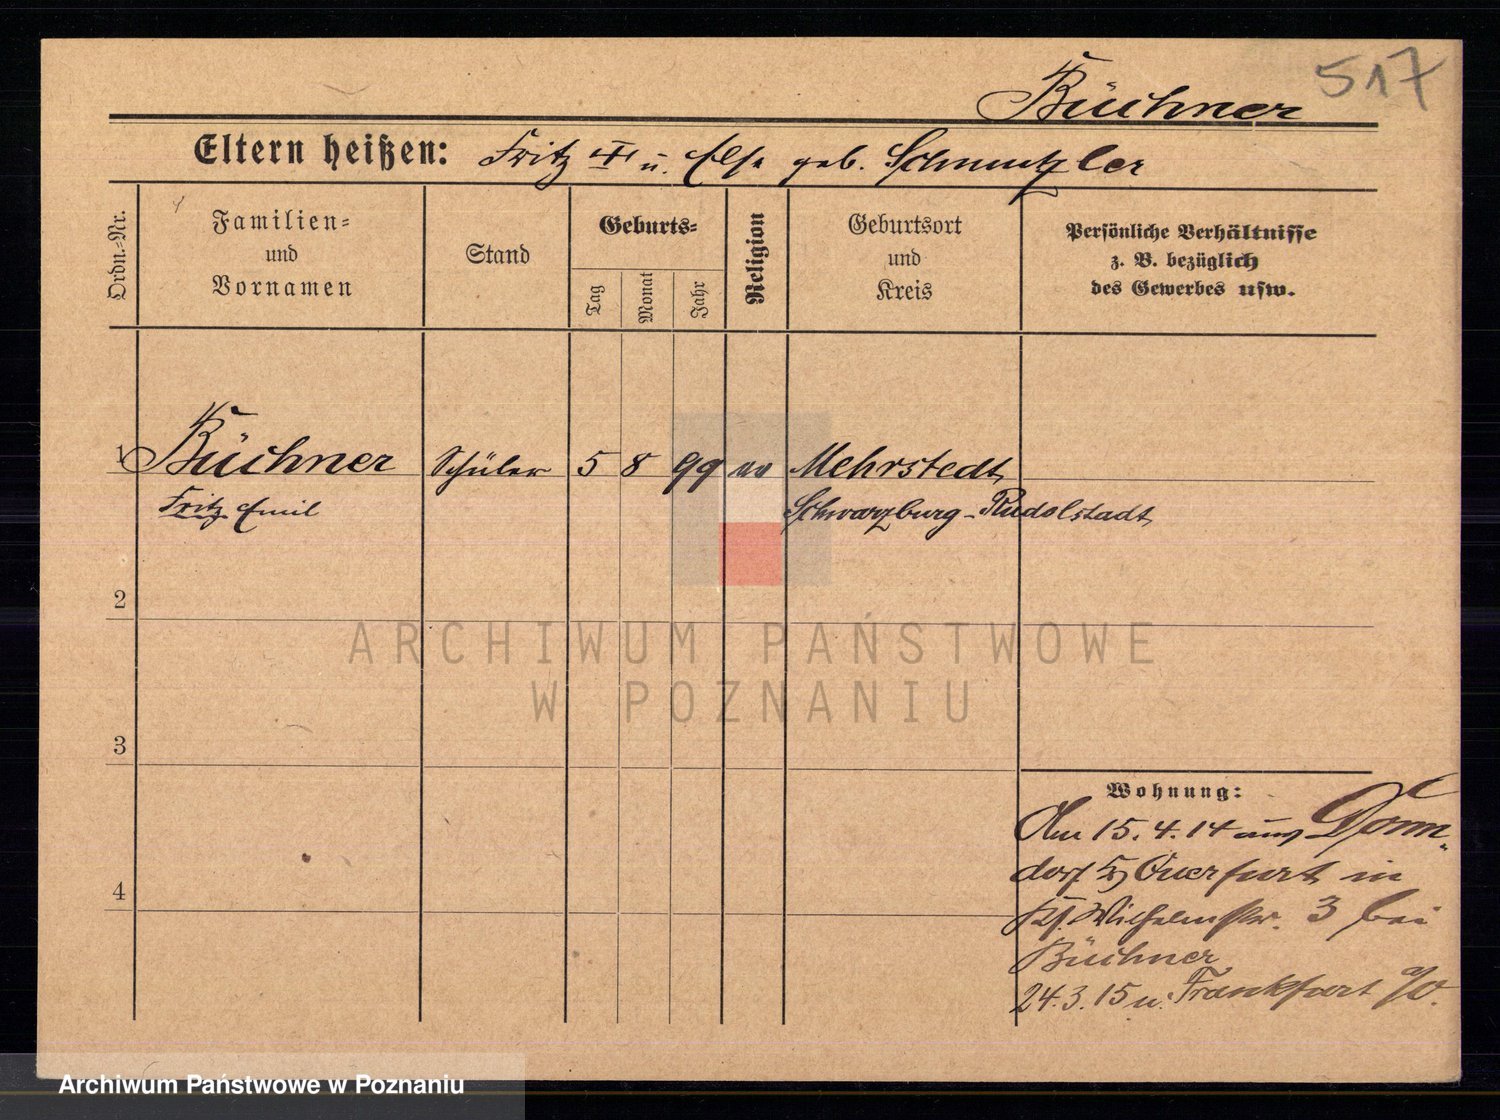 517
Büchner
Eltern heißen: Fritz III u. Else geb. Schmutzler
Ordn.-Nr.
Familien- und Vornamen
Stand
Geburts-
Tag
Monat
Jahr
Religion
Geburtsort und Kreis
Persönliche Verhältnisse
z. B. bezüglich
des Gewerbes usw.
1 Büchner Schüler 5 8 99 ev Mehrstedt
Fritz Emil Schwarzburg-Rudolstadt
2
ARCHIWUM PAŃSTWOWE
W POZNANIU
3
Wohnung:
Am 15.4.14 aus Donn-
dorf Querfurt in
4
Wilhelmstr. 3 bei
Büchner
24.3.15 n. Frankfurt a/O.
Archiwum Państwowe w Poznaniu